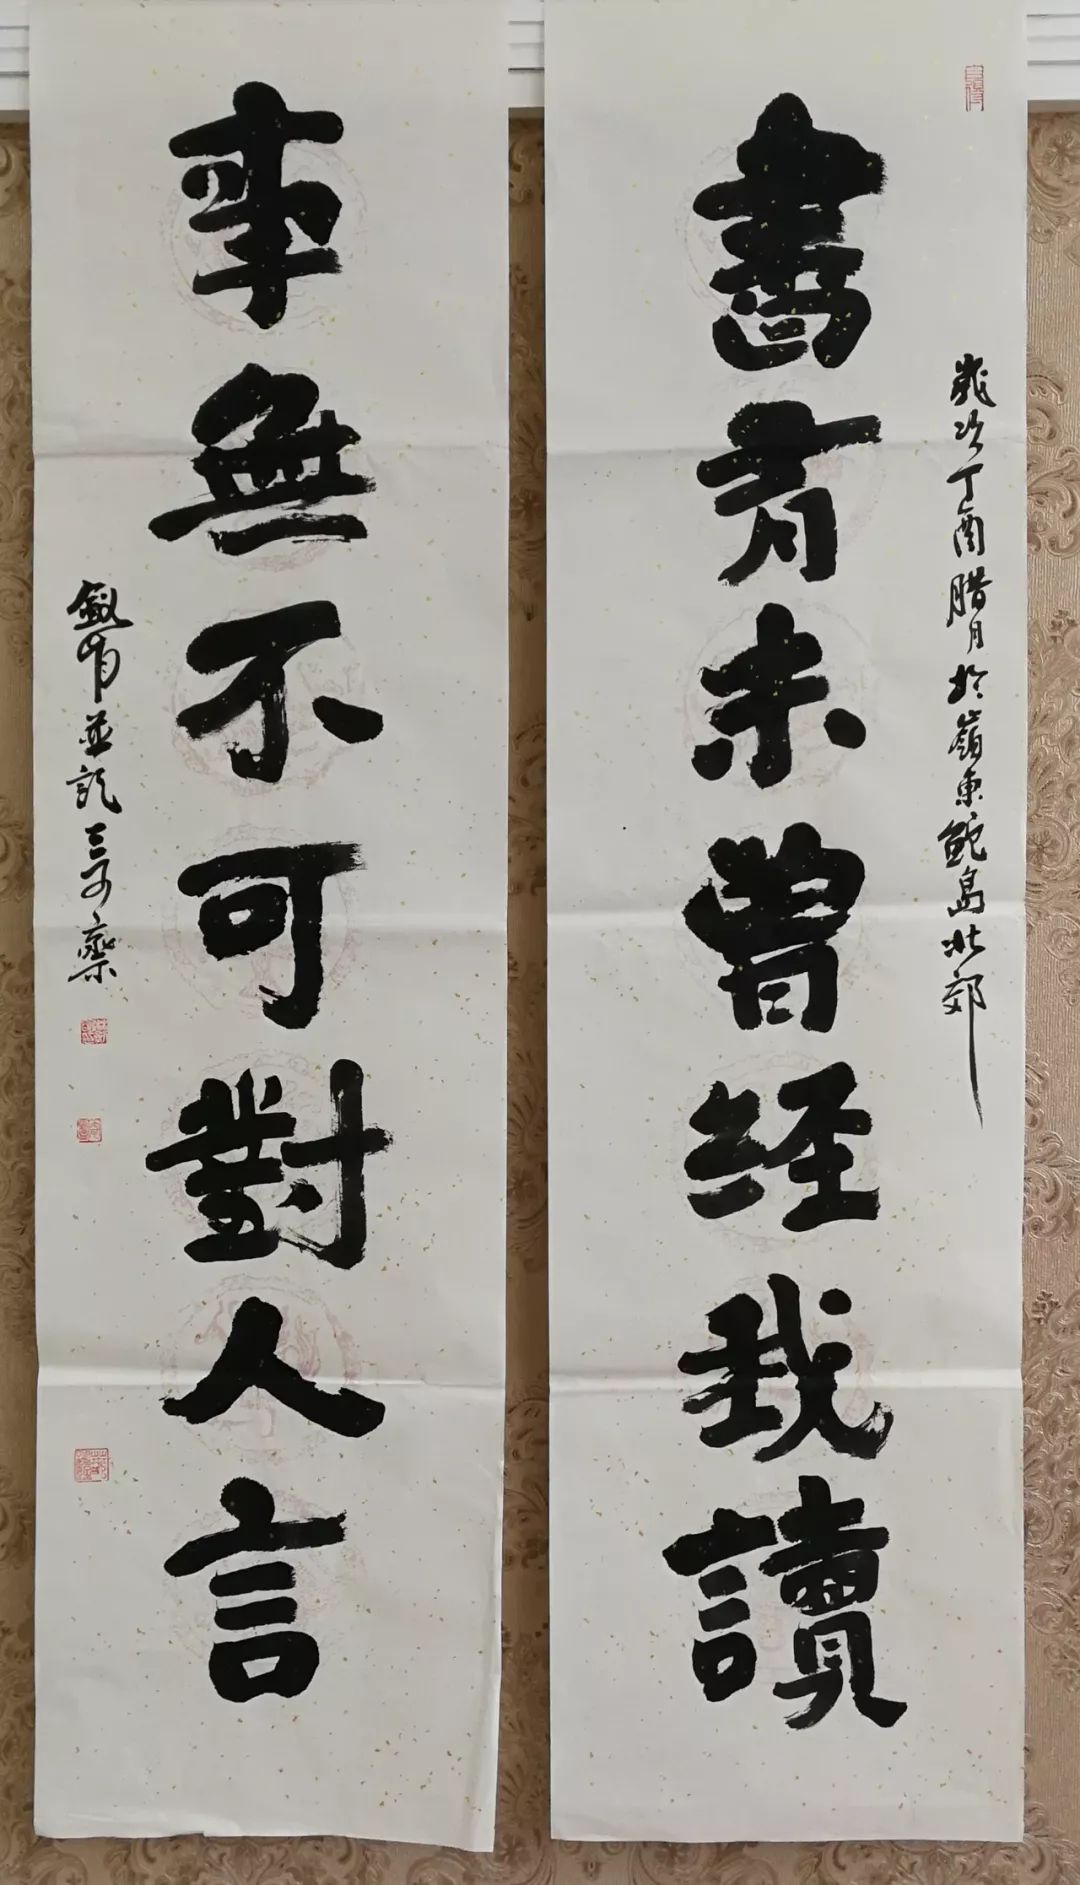 歲次丁酉腊月於嶺東鮀島北郊
書有未曾经我讀
事無不可對人言
並記三可齋